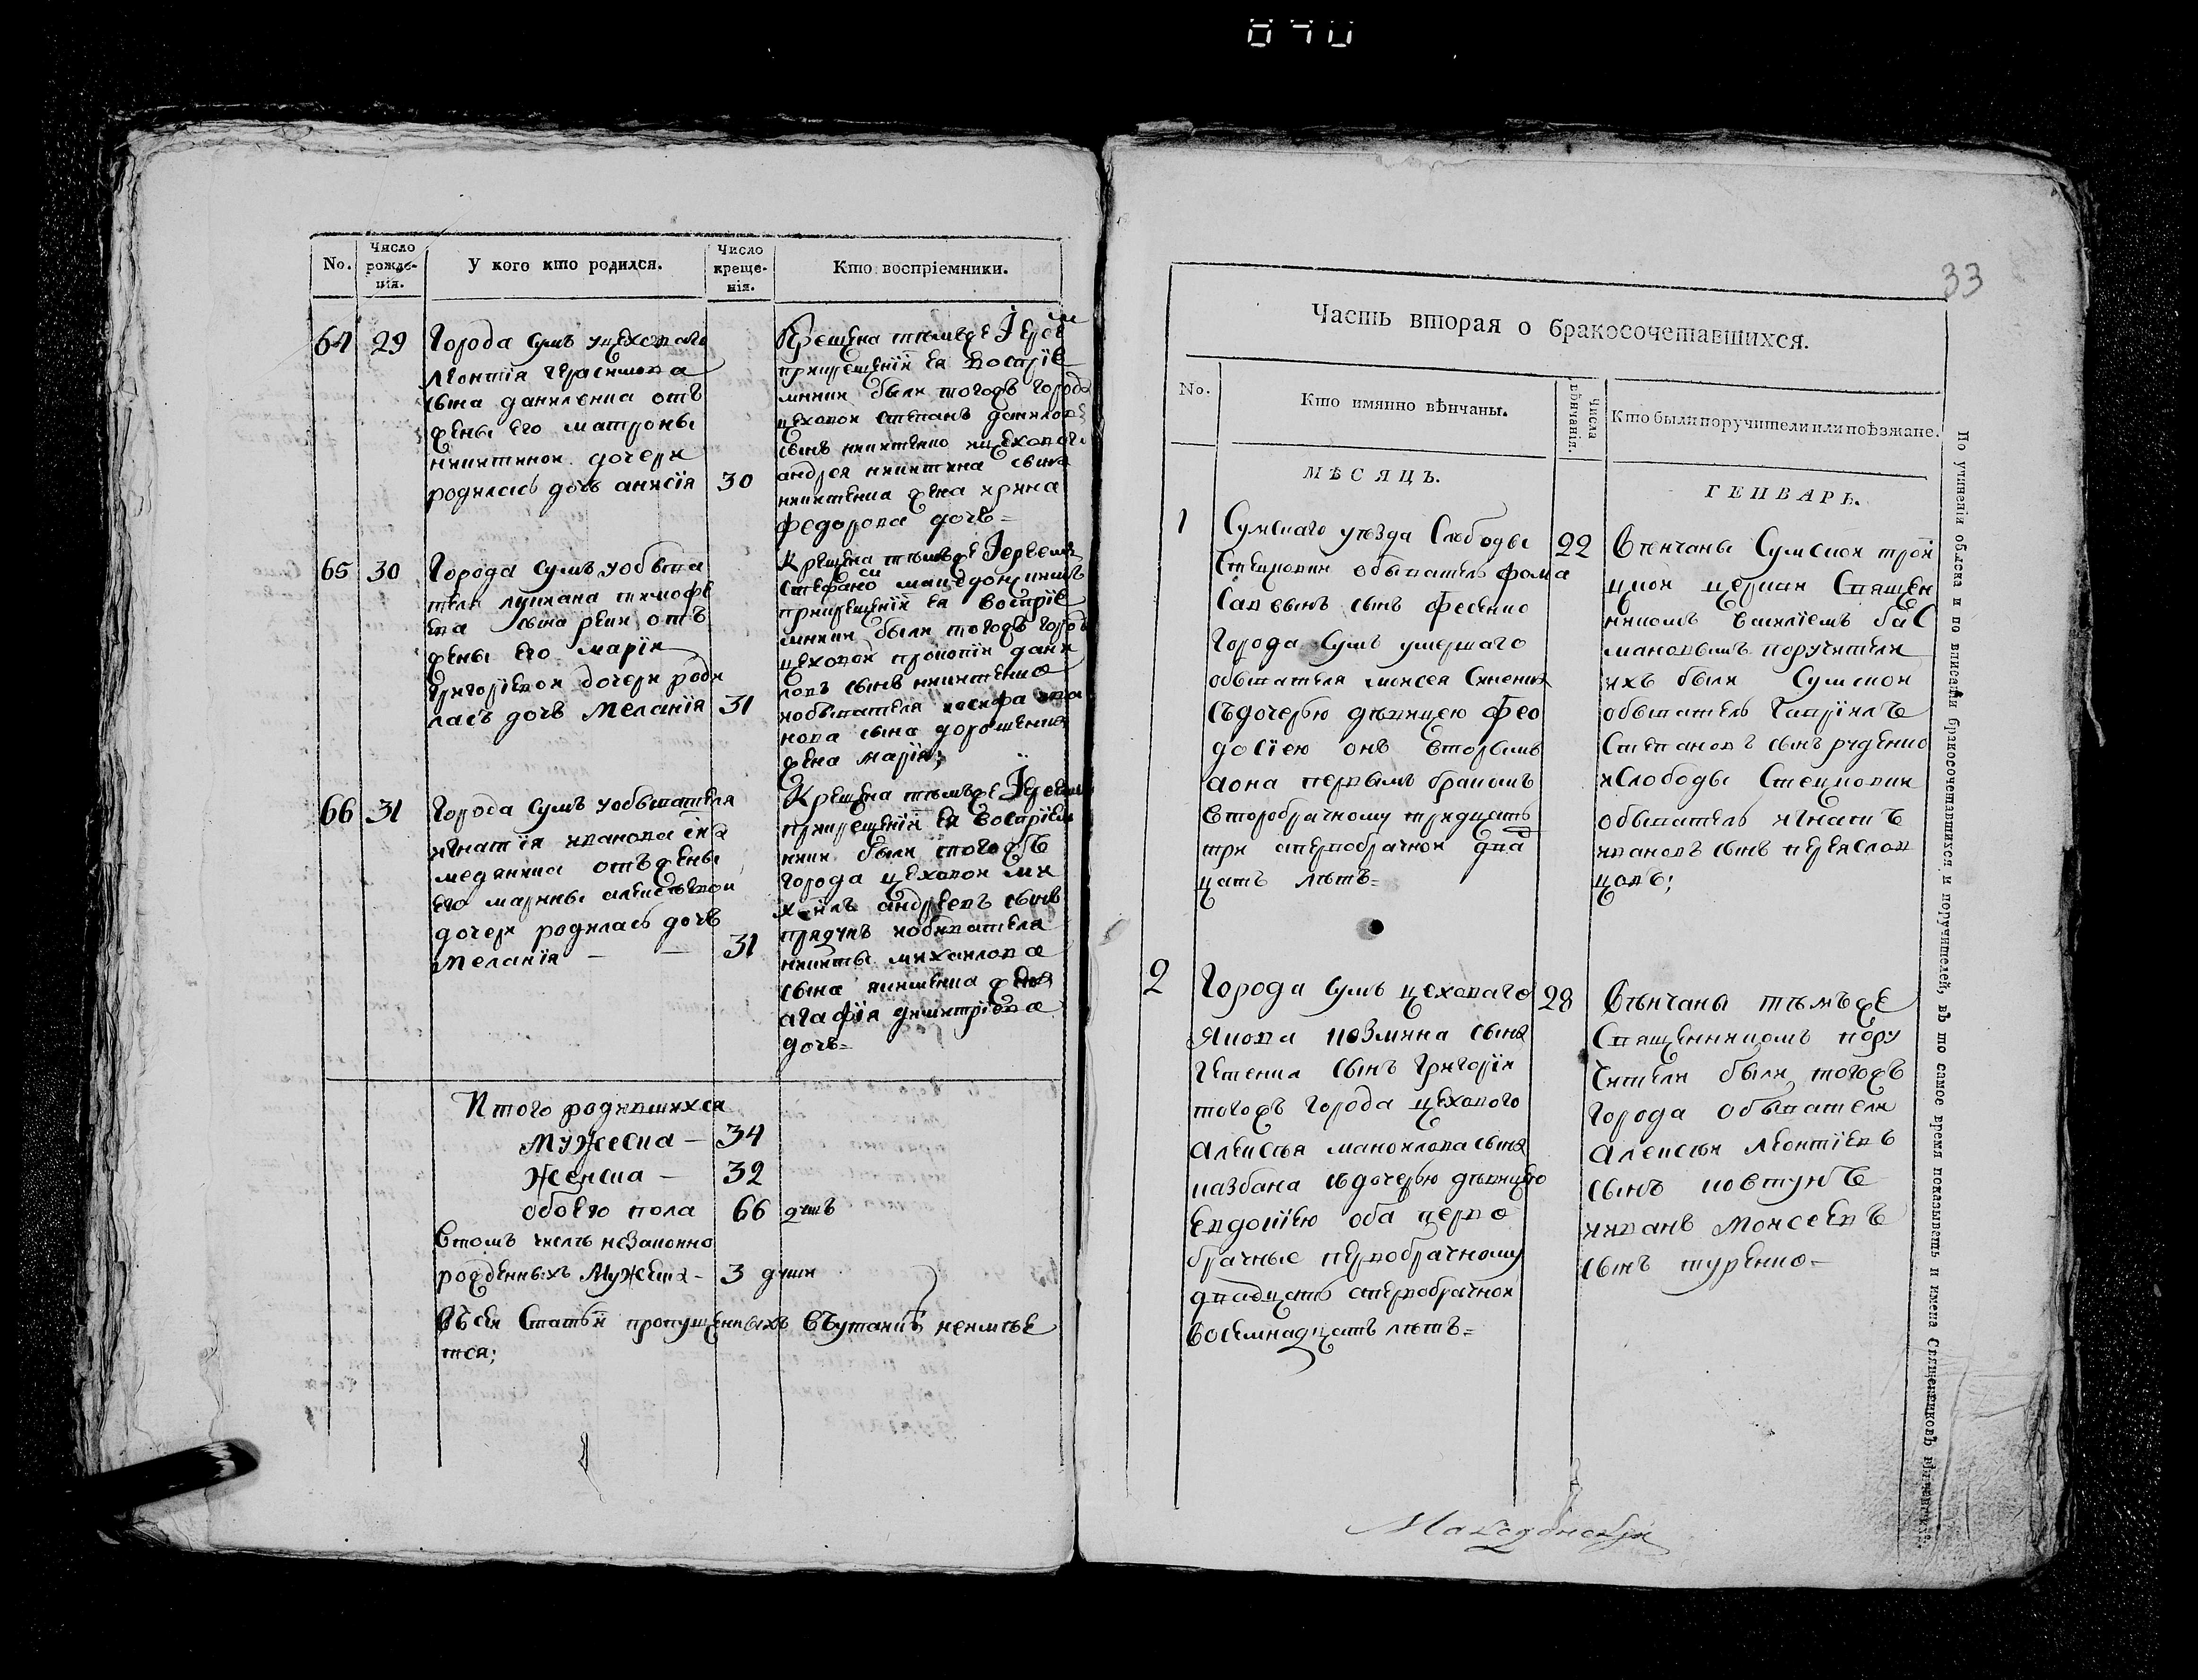 33
No.
Число рожде-
нія.
У кого кто родился.
Число креще-
нія.
Кто воспріемники.
64 29
Города Сумъ уцеховаго
леонтія герасимова
сына даниленка отъ
жены его матроны
никитиной дочери
родилась дочь анисія 30
Крещена темъже Іереем
прикрещеніи ея воспріе
мники были тогожъ города
цеховой степанъ данилов
сынъ никитенко ицеховаго
андрея никитина сына
никитенка жена ирина
федорова дочь=
65 30
Города Сумъ уобыва
теля лукиана тимофе
ева сына отъ
жены его маріи
григоріевой дочери роди
лась дочь Меланія 31
Крещена темъже Іереемъ
Стефаномъ македонскимъ
прикрещеніи ея воспріе
мники были тогожъ города
цеховой прокопій дани
ловъ сынъ никитенко
иобывателя иосифа ива
нова сына дорошенка
жена марія;
66 31
Города Сумъ уобывателя
игнатія иванова сна
медяника отъ жены
его марины алексѣевой
дочери родилась дочь
Меланія — — 31
Крещена темъже Іереемъ
прикрещеніи ея воспріем
ники были тогожъ
города цеховой ми
хаилъ андреевъ сынъ
иобывателя
никиты михаилова
сына жена
агафія димитріева
дочь=
Итого родившихся
Мужеска — 34
Женска — 32
обоего пола 66 душъ
Втомъ числѣ незаконно
рожденныхъ Мужеска - 3 души
Въсей Статьи пропущенныхъ Въутайкѣ неимѣе
тся;
Часть вторая о бракосочетавшихся.
No.
Кто имянно вѣнчаны.
Числа
вѣнчанія.
Кто были поручители или поѣзжане.
МѢСЯЦЪ.
ГЕНВАРЬ.
1
Сумскаго уѣзда Слободы
Стецковки обыватель фома
Савинъ сынъ фесенко
города Сумъ умершаго
обывателя моисея
съдочерью дѣвицею фео
досіею онъ вторымъ
аона первымъ бракомъ
второбрачному тридцать
три апервобрачной два
цать лѣтъ=
22
Вѣнчаны Сумской трои
цкой церкви Священ
никомъ Василіемъ
поручители
ихъ были Сумской
обыватель гавріилъ
Степановъ сынъ руденко
иСлободы Стецковки
обыватель игнатъ
ивановъ сынъ переяслов
цовъ;
2
Города Сумъ цеховаго
якова козмина сына
сынъ григорій
тогожъ города цеховаго
алексѣя маноилова сына
казбана съдочерью дѣвицею
евдокіею оба перво
брачные первобрачному
двадцать апервобрачной
восемнадцать лѣтъ=
28
Вѣнчаны темъже
Священникомъ пору
чители были тогожъ
города обыватели
алексѣй леонтіевъ
сынъ ковтунъ
ииванъ моисеевъ
сынъ туренко-
Македонскій
По учиненіи обыска и по вписаніи бракосочетавшихся и поручителей, въ то самое время показывать и имена Священниковъ вѣнчавшихъ.